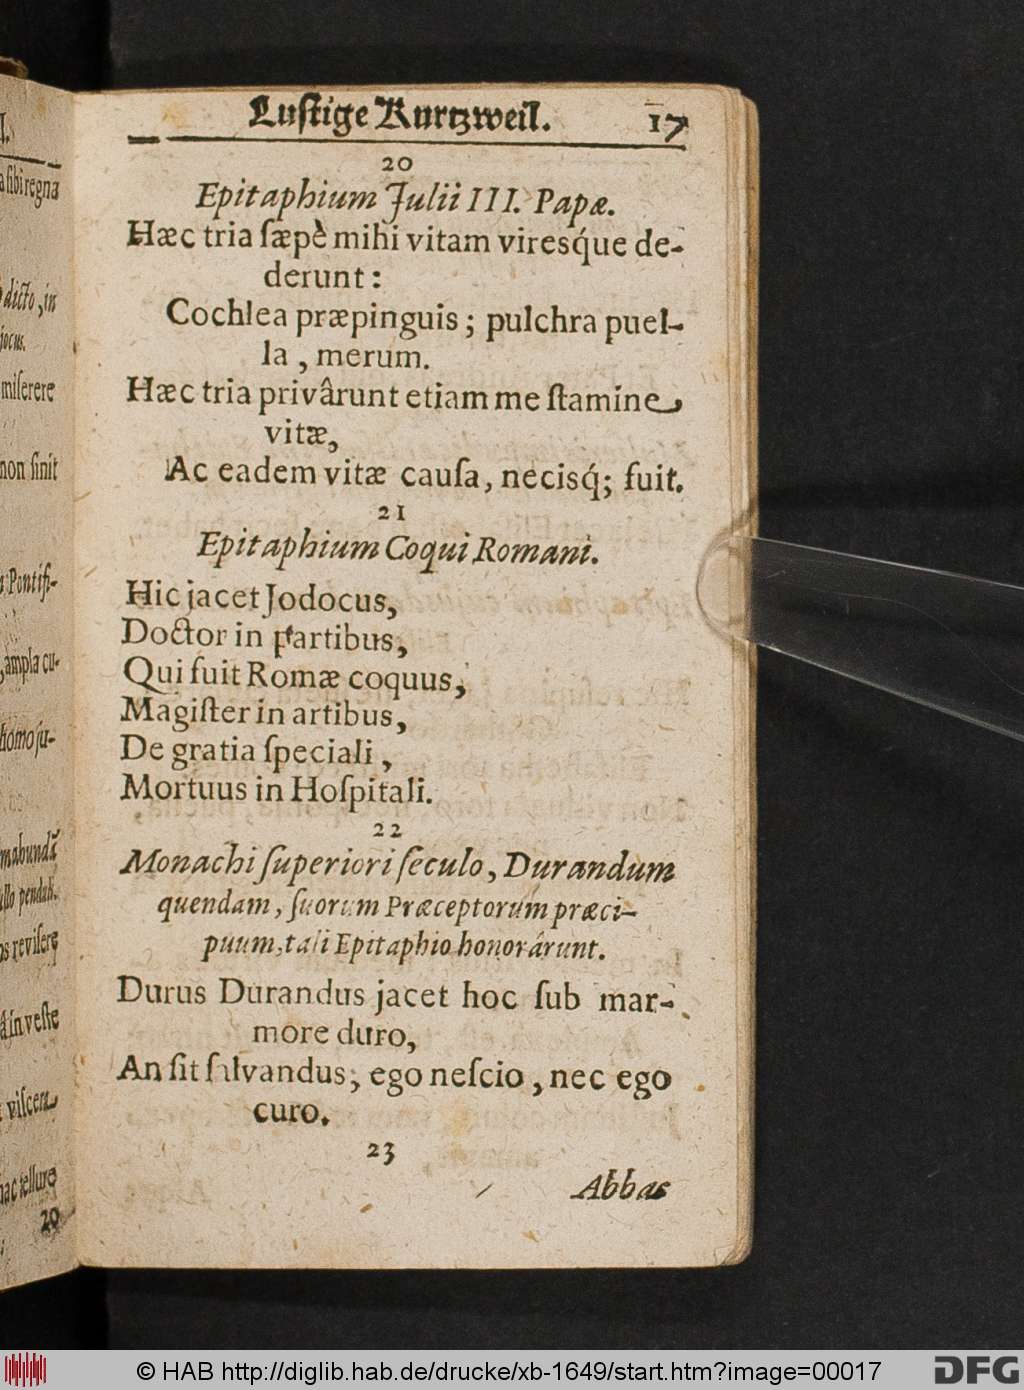 l.
a ſibi regna
dicto, in
jocus.
miſerere
non ſinit
Pontifi-
ampla cu-
homo ſu-
mabundā
ullo penduli.
os reviſere
in veſte
viſcera
hac tellure
20
Luſtige Kurtzweil. 17
20
Epitaphium Julii III. Papæ.
Hæc tria ſæpè mihi vitam viresq́ue de-
derunt:
Cochlea præpinguis; pulchra puel-
la, merum.
Hæc tria privârunt etiam me ſtamine
vitæ,
Ac eadem vitæ cauſa, necisq́; fuit.
21
Epitaphium Coqui Romani.
Hic jacet Jodocus,
Doctor in partibus,
Qui fuit Romæ coquus,
Magiſter in artibus,
De gratia ſpeciali,
Mortuus in Hoſpitali.
22
Monachi ſuperiori ſeculo, Durandum
quendam, ſuorum Præceptorum præci-
puum, tali Epitaphio honorârunt.
Durus Durandus jacet hoc ſub mar-
more duro,
An ſit ſalvandus, ego neſcio, nec ego
curo.
23
Abbas
© HAB http://diglib.hab.de/drucke/xb-1649/start.htm?image=00017
DFG